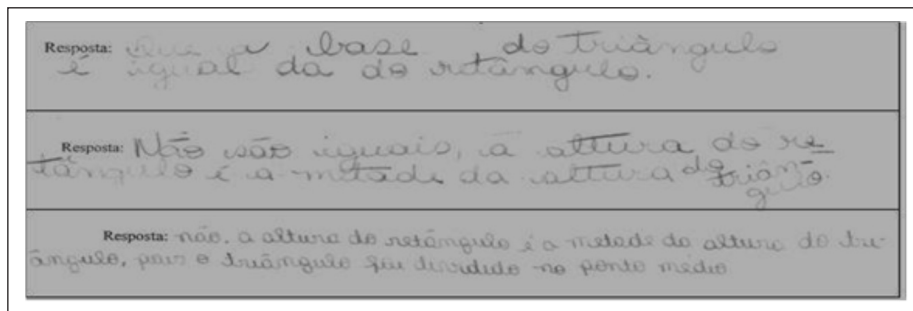 Resposta: Que a base do triângulo
é igual da do retângulo.
Resposta: Não são iguais, a altura do re-
tângulo é a metade da altura do triân-
gulo.
Resposta: não, a altura do retângulo é a metade da altura do tri-
ângulo, pois o triângulo foi dividido no ponto médio